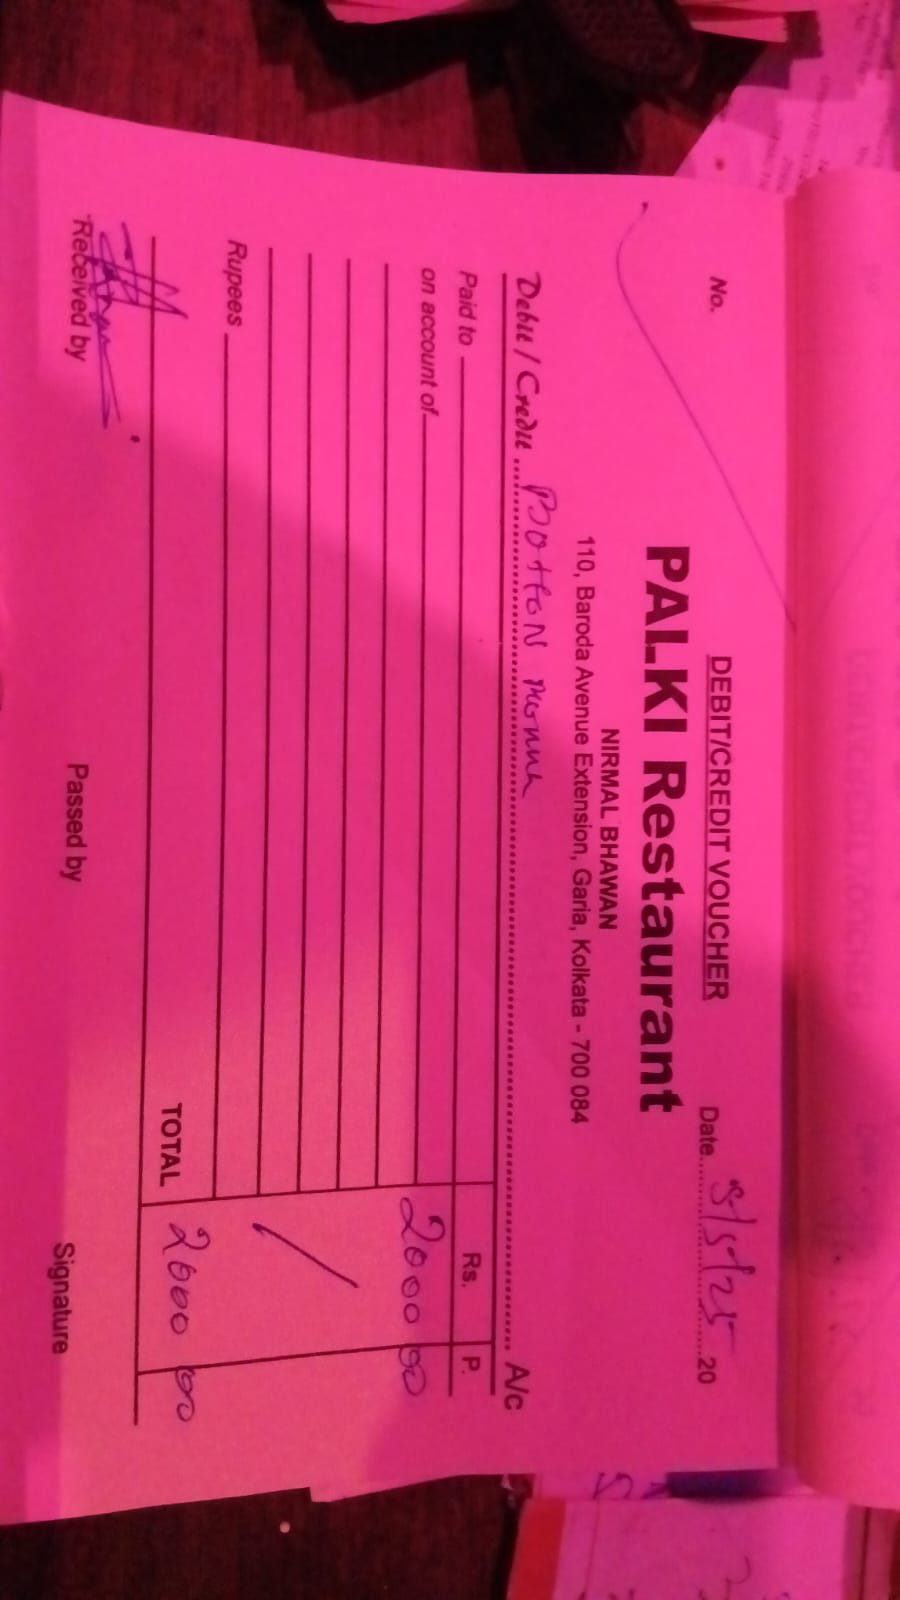 DEBIT/CREDIT VOUCHER
No. Date 5/5/25 20
PALKI Restaurant
NIRMAL BHAWAN
110, Baroda Avenue Extension, Garia, Kolkata - 700 084
Debit / Credit A/c
Paid to Rs. P.
on account of 2000 00
/
Rupees
TOTAL 2000 00
Received by Passed by Signature